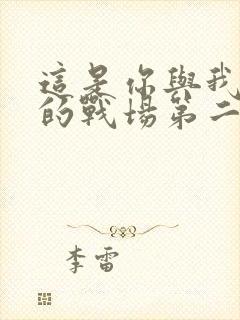 這是你與我
的戰場第二
李雷